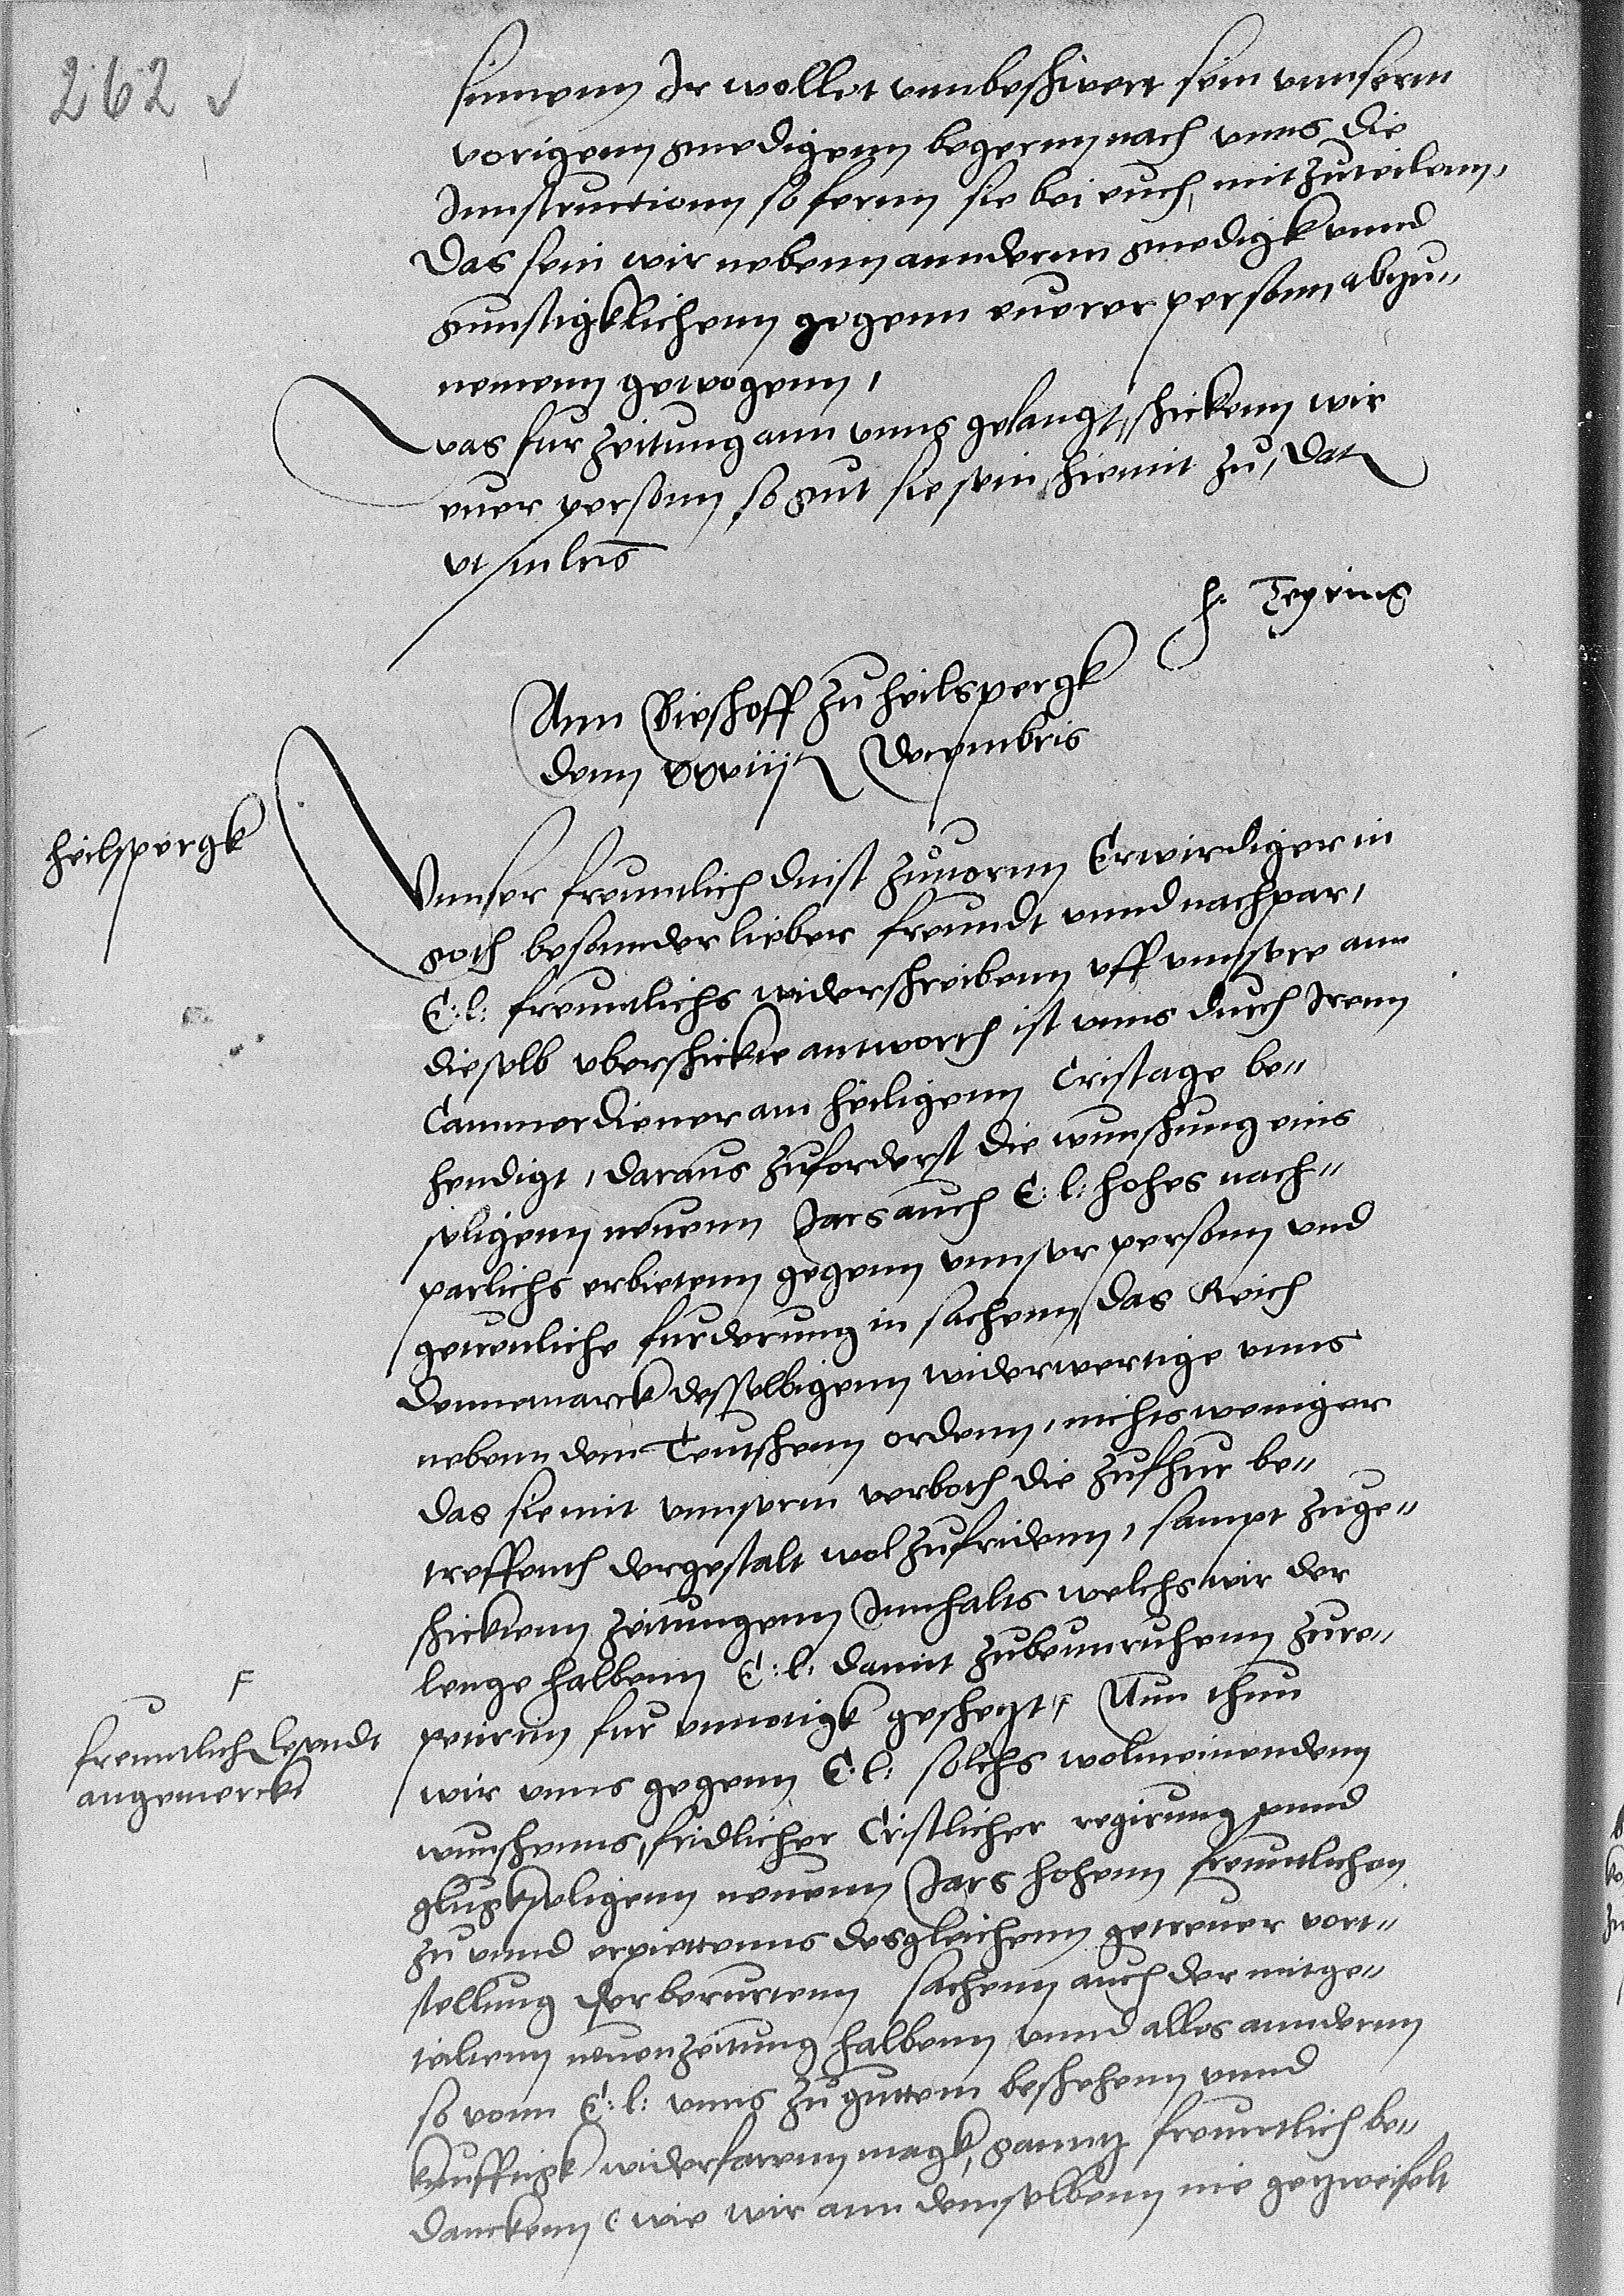 262
sinnenn Ir wollet unnbeschwert sein unnserm
vorigenn gnedigenn begernn nach unns die
Innstructionn so fernn sie bei euch, mitzuteilenn,
Das sein wir nebenn annderm gnedigk unnd
gunstigklichenn gegenn euerer personn abzu„
nemenn gewogenn,
Was fur zeitung ann unns gelangt, schickenn wir
euer personn so gut sie sein hiemit zu, Dat
ut in lris
An Bischoff zu heilspergk
denn xxviij Decembris
heilspergk
Unnser freuntlich dinst zuuornn Erwirdiger in
goth besonnder lieber freundt unnd nachpar,
E: l: freuntlichs widerschreibenn uff unnsere ann
dieselb uberschickte antworth ist unns durch Irenn
Cammerdiener am heiligenn Cristage be„
hendigt, daraus zuforderst die wunschung eins
seligenn neuenn Jars auch E: l: hohes nach„
parlichs erbietenn gegenn unnser personn und
getreuliche furderung in sachenn, das Reich
Dennemarck desselbigenn widerwertige unns
nebenn dem Teutschenn ordenn, nichts weniger
das sie mit unnserm verboth die zufhur be„
treffenth dergestalt wol zufridenn, sampt zuge„
schicktenn zeitungenn Innhalts welchs wir der
lenge halbenn E: l: damit zubeunruhenn zure„
petirnn fur unnotigk geschetzt, F Nun thun
F
freuntlich lesendt
angemerckt
wir unns gegenn E: l: solchs wolmeinendenn
wunschenns, fridlicher Cristlicher regirung unnd
glugkseligenn neuenn Jars hohenn freuntlichen
zu unnd erpiettenns desgleichenn getreuer vort„
stellung der berurtenn sachenn auch der mitge„
teiltenn neuen zeitung halbenn unnd alles anndernn
so vonn E: l: unns zu guttem beschehenn unnd
kunfftigk widerfarenn magk, ganntz freuntlich be„
danckenn (: wie wir ann demselbenn nie gezweifelt